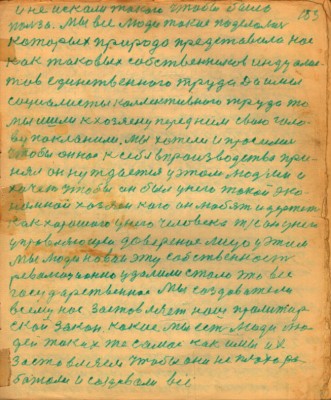 и не искали такой чтобы было 153
польза. Мы все люди такие поделомы
которых природа представила нас
как таковых собственников индуалис
тов единственного труда Да мы
социалисты коллективного труда то
мы ишли к хозяену передним свою голо
ву поклонили. Мы хотели и просили
чтобы он нас к себе в производство при
нял он нуждается у этом людми и
хочет чтобы он был у него такой эко
номной хозяин каго он любят и держет
как хорошого у него человека
управляющего довереное лицо у этим
Мы люди новой эту собственность
революционно удалили стало это все
государственное Мы создователи
всему нас заставляет наш пролитар
ской закон, какие мы есть люди
дей таких же самое как и мы их
заставляем чтобы они не плохо ра
ботали и создовали все